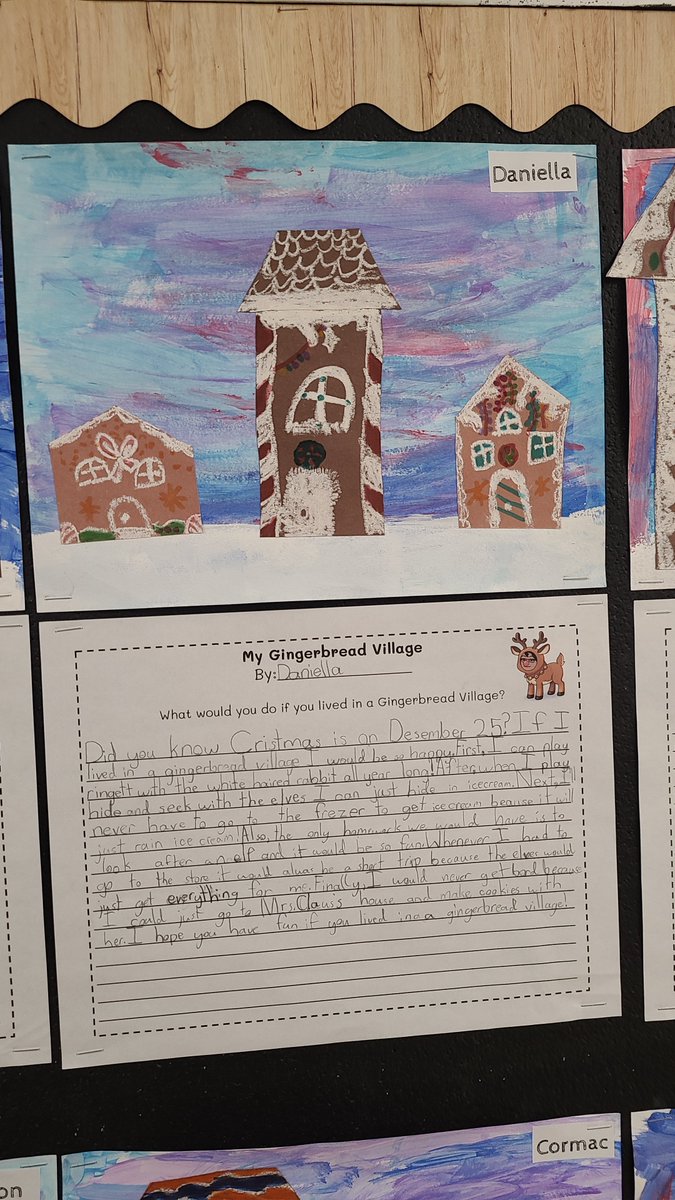 Daniella
My Gingerbread Village
By: Daniella
What would you do if you lived in a Gingerbread Village?
Did you know Cristmas is on Desember 25? If I
lived in a gingerbread village I would be so happy. First, I can play
ringett with the white haired rabbit all year long! After, when I play
hide and seek with the elves I can just hide in icecream. Next, I'll
never have to go to the frezer to get icecream beause it will
just rain ice cream! Also, the only homwork we would have is to
look after an elf and it would be so fun! Whenever I had to
go to the store it would alwas be a short trip because the elves would
just get everything for me. Finally, I would never get bord because
I could just go to Mrs. Clauss house and make cookies with
her. I hope you have fun if you lived in a gingerbread village!
Cormac
on